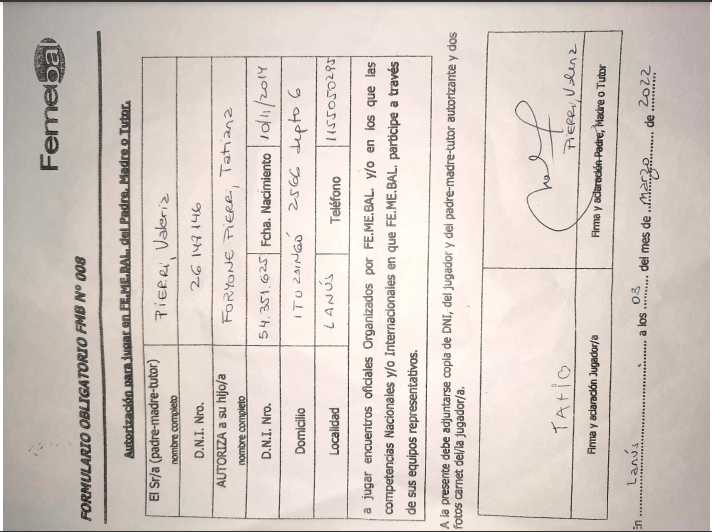 Femebal
FORMULARIO OBLIGATORIO FMB Nº 008
Autorización para jugar en FE.ME.BAL. del Padre, Madre o Tutor.
El Sr/a (padre-madre-tutor)
nombre completo
PIERRI, Valeria
D.N.I. Nro.
26147146
AUTORIZA a su hijo/a
nombre completo
FORYONE PIERRI, Tatiana
D.N.I. Nro. 54.351.625 Fcha. Nacimiento 10/11/2014
Domicilio ITUZAINGÓ 2566 depto 6
Localidad LANÚS Teléfono 1155050295
a jugar encuentros oficiales Organizados por FE.ME.BAL. y/o en los que las
competencias Nacionales y/o Internacionales en que FE.ME.BAL. participe a través
de sus equipos representativos.
A la presente debe adjuntarse copia de DNI, del jugador y del padre-madre-tutor autorizante y dos
fotos carnet del/la jugador/a.
PIERRI, Valeria
Firma y aclaración Jugador/a
Firma y aclaración Padre, Madre o Tutor
En Lanús a los 03 del mes de Marzo de 2022